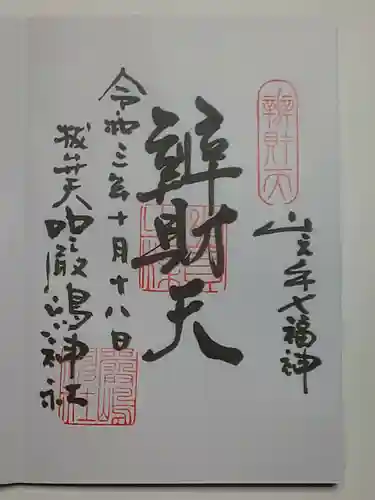 辨財天
山之手七福神
辨財天
令和三年十月十八日
抜弁天嚴嶋神社